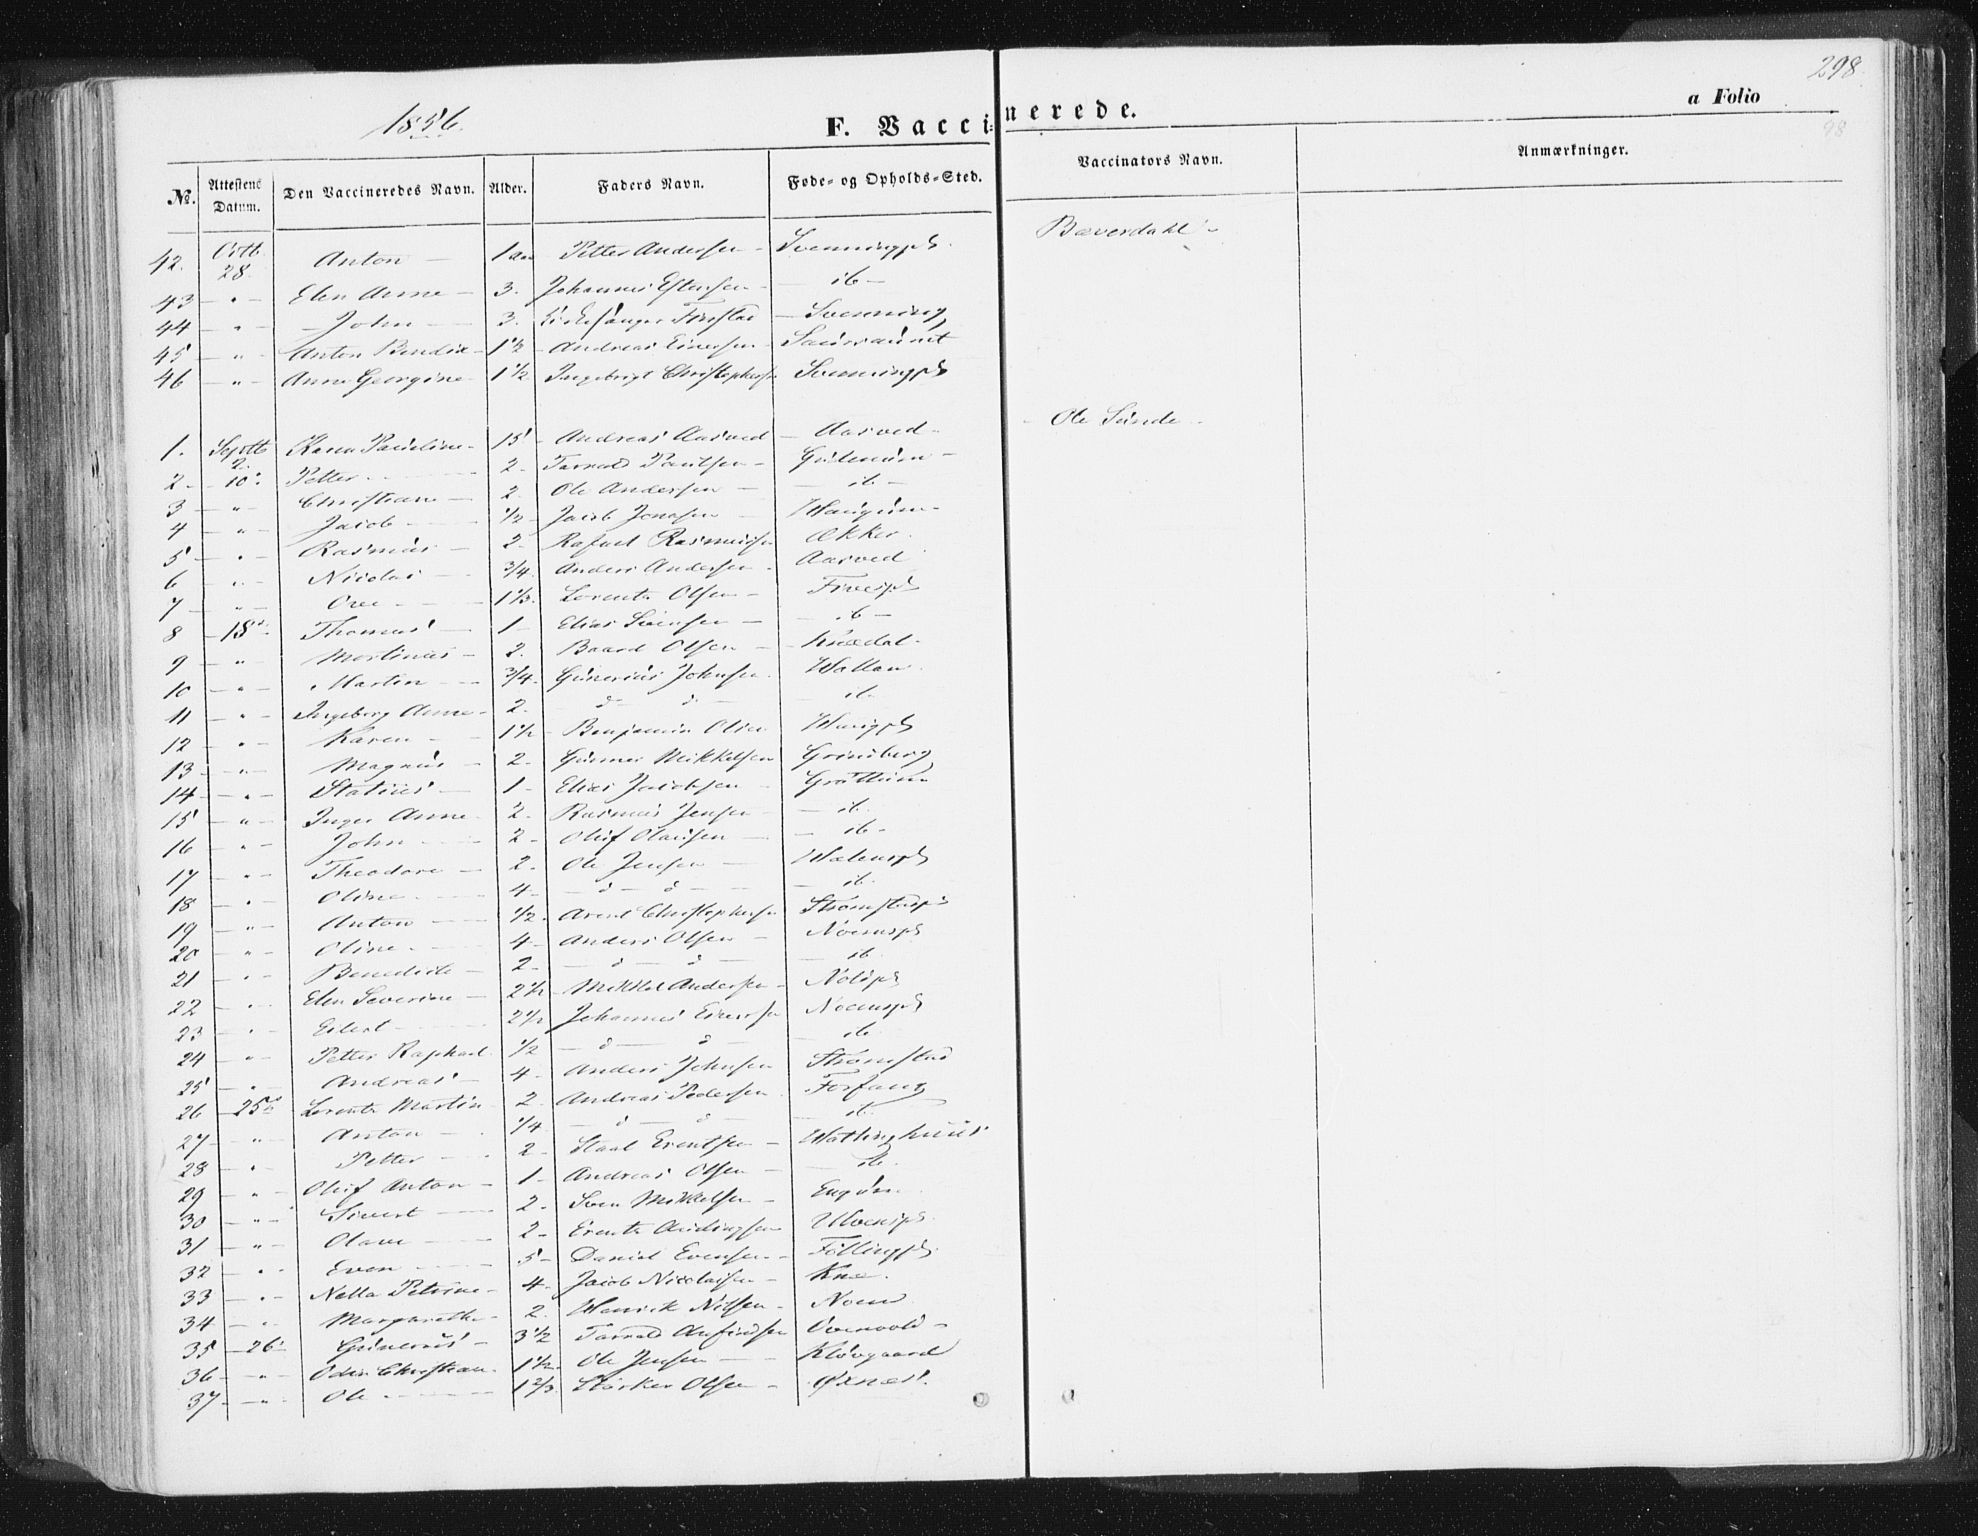 1856.
F. Vaccinerede.
a Folio
298.
98
No. Attestens Datum. Den Vaccineredes Navn. Alder. Faders Navn. Føde- og Opholds-Sted. Vaccinators Navn. Anmærkninger.
42. Octb. 28. Anton — 1 aar Petter Andersen - Svenningpl. Bæverdahl -
43 - " - Elen Anne - 3. Johannes Estensen - - ib -
44 - " - John - 3. Kirkesanger Finstad - Svenning
45 - " - Anton Bendix - 1 1/2 - Andreas Einersen -
46 - " - Anne Georgine - 1 1/2 Ingebrigt Christophersen Svenningpl
1. Septb 2. Karen Pauline - 15 - Andreas Aasved - Aasved - Ole Sunde -
2 - 10. Petter - 2. Paulsen -
3 - " - Christian - 2. Ole Andersen - - ib -
4 - " - Jacob - 1/2 - Jacob Jonasen -
5 - " - Rasmus - 2. Rafael Rasmussen Ækker.
6 - " - Nicolai - 3/4. Anders Andersen - Aasved
7 - " - Ove - 1 1/3. Lorents Olsen -
8 - 15. Thomas - 1 - Elias Svensen - - ib -
9 - " - Mortinus - 2. Baard Olsen - Knædal -
10 - " - Martin - 3/4. Gunerius Johnsen. Wallan.
11 - " - Ingeborg Anne - 2. - d - d - ib.
12 - " - Karen - 1 1/2 - Benjamin Olsen
13 - " - Magnus - 2. Gunner Mikkelsen Grindberg
14 - " - 1 - Elias Jacobsen - Grøttum
15 - " - Inger Anne - 2. Rasmus Jensen - - ib.
16 - " - John - 2 - Oluf Olausen - - ib -
17 - " - Theodore - 2. Ole Jensen -
18 - " - Oline - 4 - - d - d - - ib.
19 - " - Anton - 1/2. Arent Christophersen Strømstadpl
20 - " - Oline - 4 - Anders Olsen - Noemspl
21 - " - Benedicte - 2 - - d - d - - ib
22 - " - Elen Severine - 2 1/2 - Mikkel Andersen -
23 - " - Eilert - 2 1/2 Johannes Einersen Noemspl
24 - " - Petter Raphael 1/2 - d - d - ib
25 - " - Andreas - 4 - Anders Johnsen Strømstad
26 - 25. Lorents Martin 2 - Andreas Pedersen Forfang
27 - " - Anton - 1/4 - d - d - ib.
28 - " - Petter - 2 - Staal Erentsen -
29 - " - Oluf Anton - 1 - Andreas Olsen - - ib.
30 - " - Sivert - 2. Sven Mikkelsen -
31 - " - Olave - 2 - Erents Audingsen Ulvenspl
32 - " - Even - 5 - Daniel Evensen - Føllingpl
33 - " - Nella Petrine - 4 - Jacob Nicolaisen - Knæ.
34 - " - Margarethe - 2. Henrik Nilsen - Noem
35 - 26. Gunerius - 3 1/2 Anfindsen
36 - " - Odin Christian - 1 1/2 - Ole Jensen - Kløvgaard
37 - " - Ole - 1 2/3. Størker Olsen - Øxnæs.